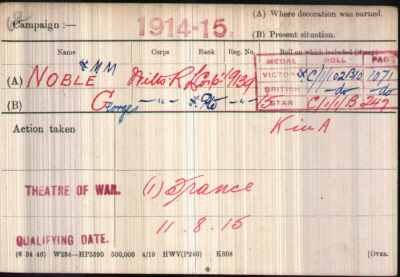 Campaign :— 1914-15. (A) Where decoration was earned.
(B) Present situation.
Name Corps Rank Reg. No. Roll on which included (if any)
MEDAL ROLL PAGE
(A) NOBLE * MM Wilts R L/Cpl 19139 VICTORY * C/1/102B10 1071
BRITISH -do- -do-
(B) George —"— * Pte —"— 15 STAR C/1/1/B 247
Action taken K in A
THEATRE OF WAR. (1) France
11.8.15
QUALIFYING DATE.
(6 34 46) W234—HP5590 500,000 4/19 HWV(P240) K608 [Over.